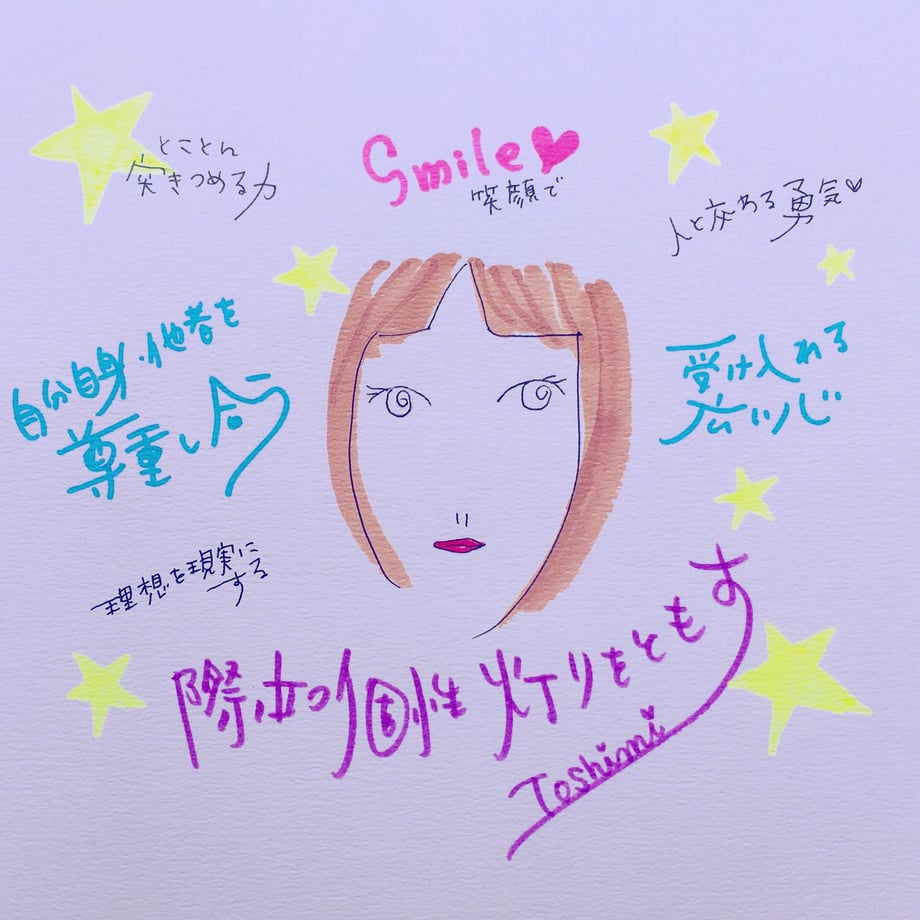 Smile♥
笑顔で
とことん
突きつめる力
人と交わる勇気♡
自分自身・他者を
尊重し合う
受け入れる
広い心
理想を現実に
する
際立つ個性 灯りをともす
Toshimi